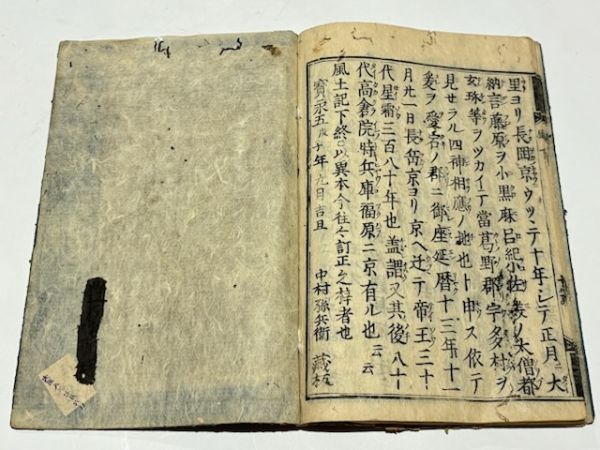 里ヨリ長岡京ウツシテ十年ニシテ正月ニ大
納言藤原ヲ小黒麻呂紀小佐美ノ大僧都
玄珠等ヲツカイテ當葛野郡宇多村ヲ
見セラル四神相應ノ地也ト申ス依テ
爰ヲ愛宕ノ郡ニ御座延暦十三年十一
月廿一日長岡京ヨリ京ヘ迁テ帝王三十
代星霜三百八十年也盖謂又其後八十
代高倉院時兵庫福原ニ京有ル也云云
風土記下終以異本今往々訂正之持者也
寳永五年九月吉旦 中村孫兵衛 藏板